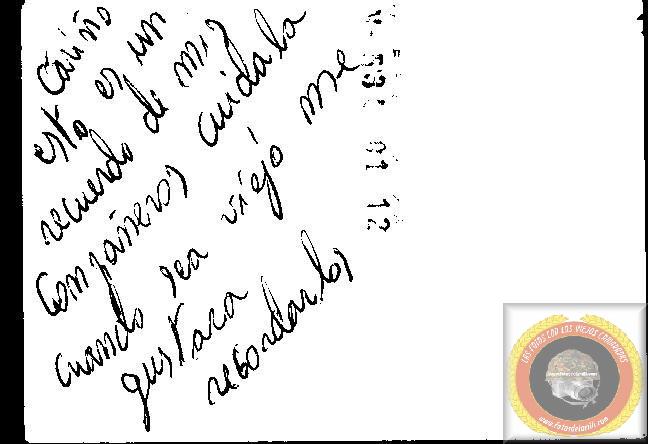 Cariño
esto es un
recuerdo de mis
Compañeros cuidala
cuando sea viejo me
gustara
recordarlos
01 12
LAS FOTOS CON LOS VIEJOS CAMARADAS